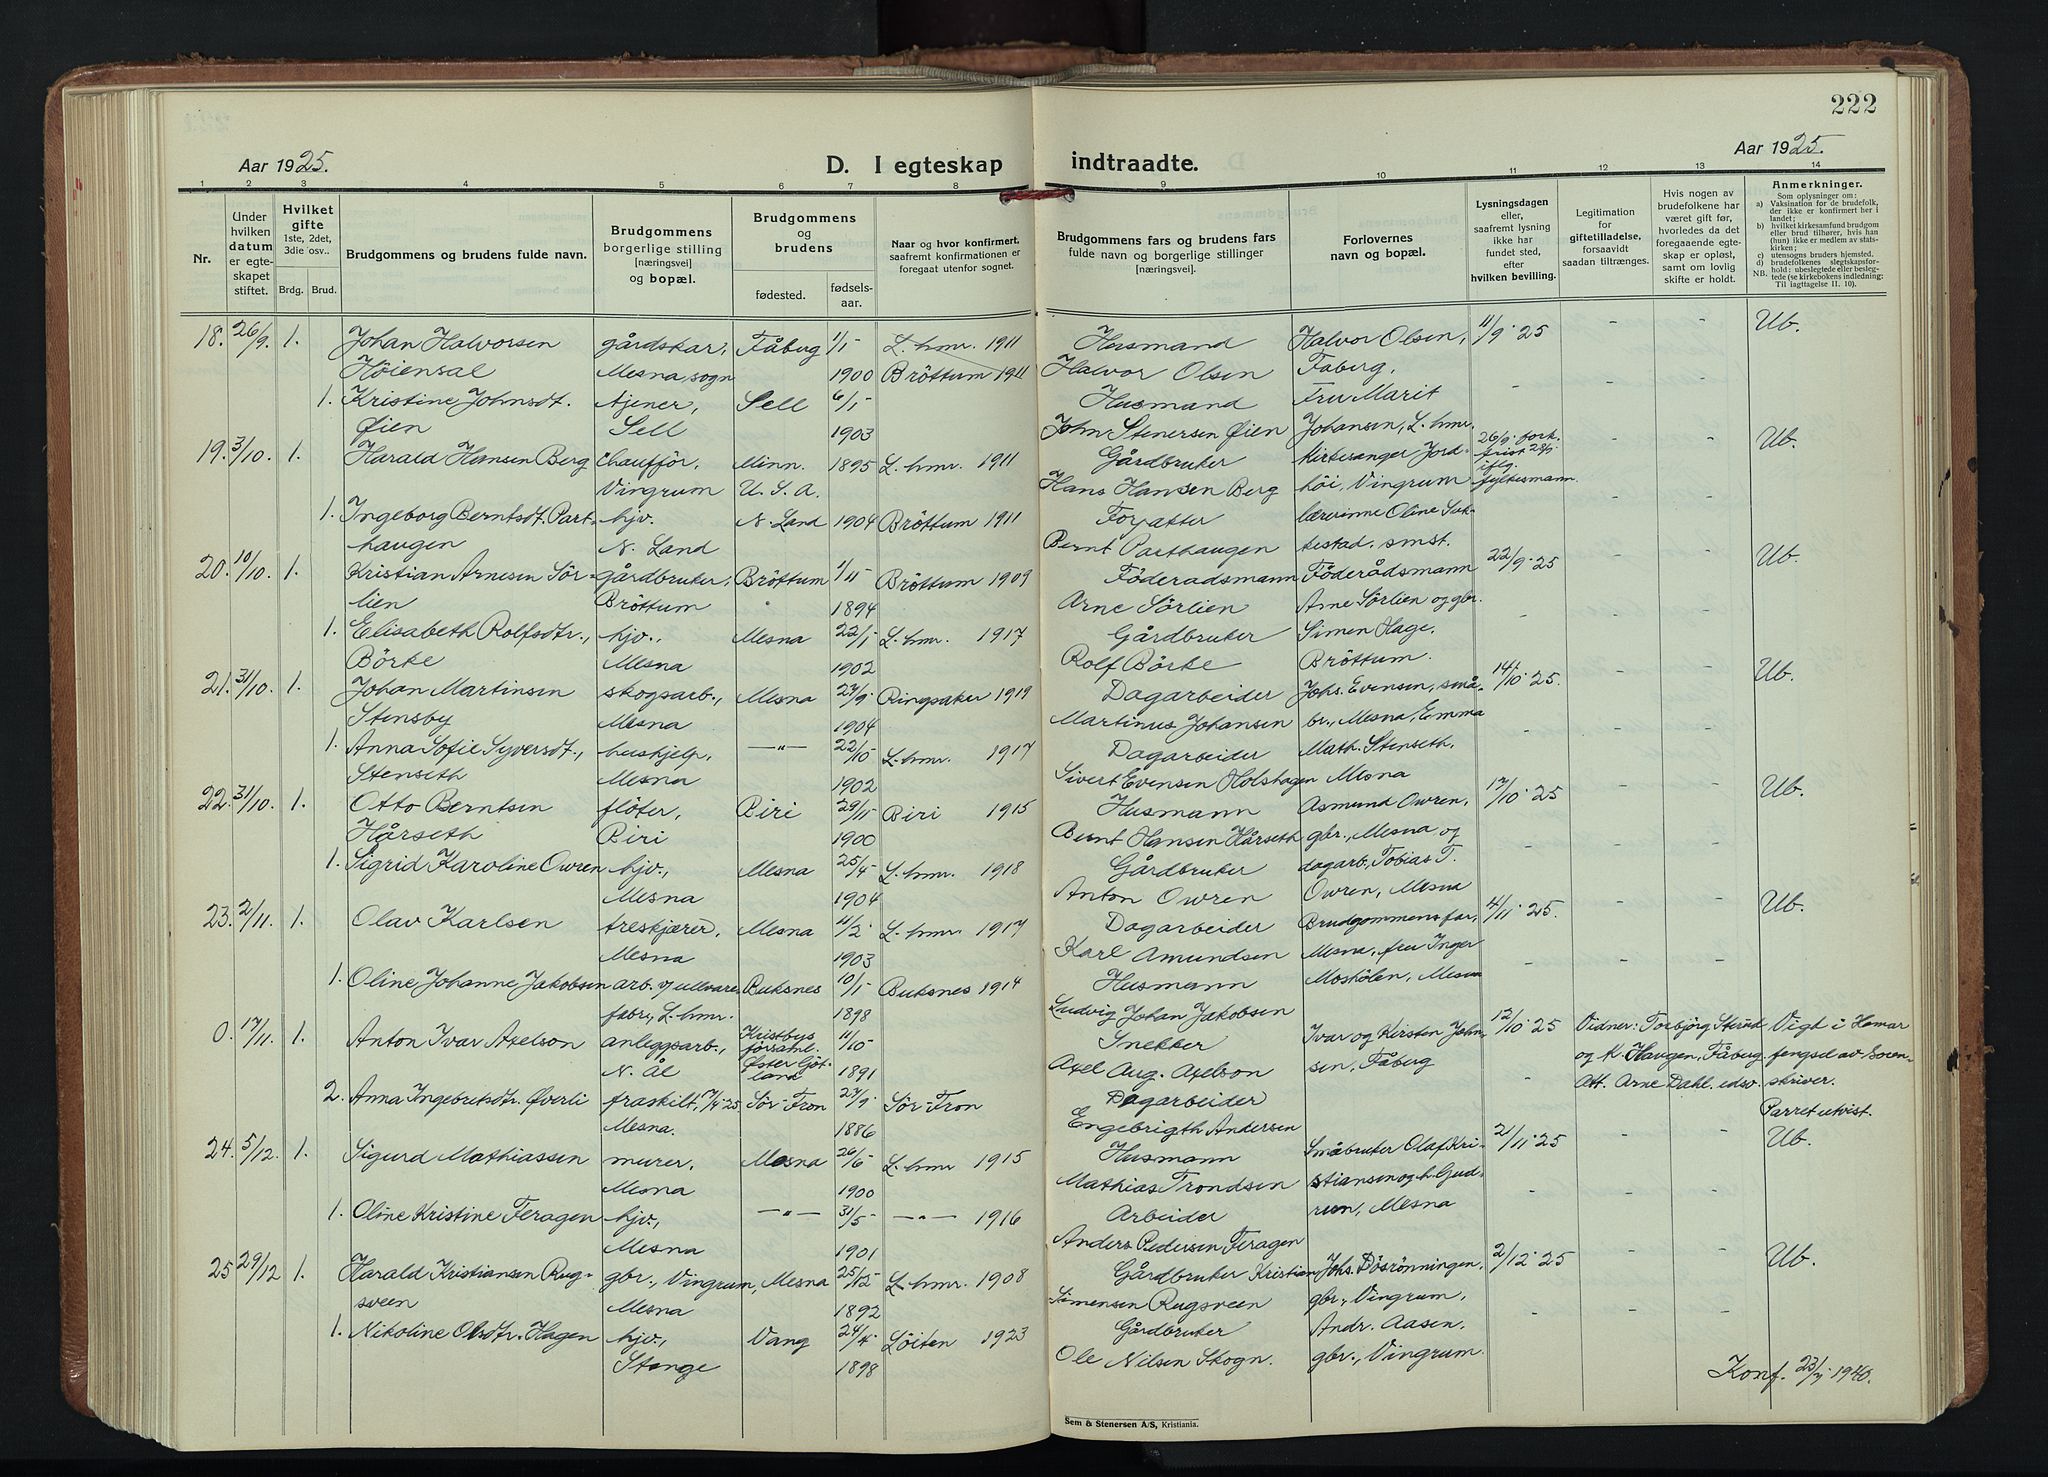 222
Aar 1925.
D. I egteskap indtraadte.
Aar 1925.
1 2 3 4 5 6 7 8 9 10 11 12 13 14
Nr.
Under hvilken datum er egteskapet stiftet.
Hvilket gifte 1ste, 2det, 3die osv..
Brdg. Brud.
Brudgommens og brudens fulde navn.
Brudgommens borgerlige stilling [næringsvei] og bopæl.
Brudgommens og brudens
fødested. fødselsaar.
Naar og hvor konfirmert, saafremt konfirmationen er foregaat utenfor sognet.
Brudgommens fars og brudens fars fulde navn og borgerlige stillinger [næringsvei]
Forlovernes navn og bopæl.
Lysningsdagen eller, saafremt lysning ikke har fundet sted, efter hvilken bevilling.
Legitimation for giftetilladelse, forsaavidt saadan tiltrænges.
Hvis nogen av brudefolkene har været gift før, hvorledes da det foregaaende egteskap er opløst, samt om lovlig skifte er holdt.
Anmerkninger.
Som oplysninger om:
a) Vaksination for de brudefolk, der ikke er konfirmert her i landet;
b) hvilket kirkesamfund brudgom eller brud tilhører, hvis han (hun) ikke er medlem av statskirken;
c) utensogns bruders hjemsted.
d) brudefolkenes slegtskapsforhold: ubeslegtede eller beslegtede (se kirkebokens indledning;
NB. Til iagttagelse II. 10).
18. 26/9. 1. Johan Halvorsen gårdskar, Fåberg 1/1- L.hmr. 1911 Husmand Halvor Olsen, 11/9 25 - - Ub.
Höiensal Mesna sogn 1900 Bröttum 1911 Halvor Olsen Faberg.
1. Kristine Johnsdt. tjener, Sell 6/1- Husmand Fru Marit - - -
Øien Sell 1903 John Stenersen Øien Johansen, L.hmr.
19. 3/10. 1. Harald Hansen Berg chaufför, Minn. 1895 L.hmr. 1911 Gårdbruker kirkesanger Jord- 26/9. fork. frist 28/9 iflg. fylkesmann. - - Ub.
Vingrum U.S.A. Hans Hansen Berg höi, Vingrum
1. Ingeborg Berntsdt. Part- hjv. N. Land 1904 Bröttum 1911 lærerinne Oline
haugen N. Land Bernt Parthaugen smst.
20. 10/10. 1. Kristian Arnesen Sör- gårdbruker, Bröttum 1/11- Bröttum 1909 Föderadsmann Föderådsmann 22/9 25 - - Ub.
lien Bröttum 1894 Arne Sörlien Arne Sörlien og gbr.
1. Elisabeth Rolfsdtr., hjv., Mesna 22/1- L.hmr. 1917 Gårdbruker Simen Hage, - - -
Börke Mesna 1902 Rolf Börke Bröttum.
21. 31/10. 1. Johan Martinsen skogsarb., Mesna 27/9- Ringsaker 1919 Dagarbeider Johs. Evensen, små- 14/10 25. - - Ub.
Stensby Mesna 1904 Martinus Johansen br., Mesna, Emma
1. Anna Sofie Syversdt., huskjelp, —"— 22/10- L.hmr. 1917 Dagarbeider Math. Stenseth, - - -
Stenseth Mesna 1902 Sivert Evensen Holshagen Mesna
22. 31/10. 1. Otto Berntsen flöter, Biri 29/11- Biri 1915 Husmann Asmund Owren, 17/10 25 - - Ub.
Hårseth Biri 1900 Bernt Hansen Hårseth gbr., Mesna og
1. Sigrid Karoline Owren hjv., Mesna 25/4- L.hmr. 1918 Gårdbruker dagarb. Tobias T. - - -
Mesna 1904 Anton Owren Owren, Mesna
23. 2/11. 1. Olav Karlsen treskjærer, Mesna 11/2- L.hmr. 1917 Dagarbeider Brudgommens far, 4/11 25. - - Ub.
Mesna 1903 Karl Amundsen Mesna, fru Inger
1. Oline Johanne Jakobsen arb. v/ ullvare- Buksnes 10/1- Buksnes 1914 Husmann Moshölen, Mesna - - -
fabr., L.hmr. 1898 Ludvig Johan Jakobsen
0. 17/11. 1. Anton Ivar Axelson anleggsarb., Kristbys forsaml. Øster Götland 11/10- Snekker Ivar og Kirsten John- 12/10 25 Vidner: Torbjörg Vigt i Hamar
N. Ål 1891 Axel Aug. Axelson sen, Fåberg og K. Haugen, Fåberg. fengsel av Soren-
2. Anna Ingebretsdtr. Øverli fraskilt, 7/4-25 Sör-Fron 27/9- Sör-Fron Dagarbeider - Att. Arne Dahl. edsv. skriver.
Mesna. 1886 Engebrigth Andersen Parret utvist.
24. 5/12. 1. Sigurd Mathiassen murer, Mesna 26/6- L.hmr. 1915 Husmann Småbruker Olaf Kri- 21/11 25 - - Ub.
Mesna 1900 Mathias Trondsen stiansen og h. Gud-
1. Oline Kristine Feragen hjv., —"— 31/5- —"— 1916 Arbeider run, Mesna - - -
Mesna 1901 Anders Pedersen Feragen
25 29/12 1. Harald Kristiansen Rug- gbr., Vingrum, Mesna 25/12- L.hmr. 1908 Gårdbruker Kristian Johs. Dösrönningen, 2/12 25 - - Ub.
sveen Mesna 1892 Simensen Rugsveen gbr., Vingrum,
1. Nikoline Olsdtr. Hagen hjv., Vang 24/4- Löiten 1923 Gårdbruker Andr. Aasen, - - -
Stange 1898 Ole Nilsen Skogn. gbr., Vingrum.
Konf. 23/7 1940.
Sem & Stenersen A/S, Kristiania.